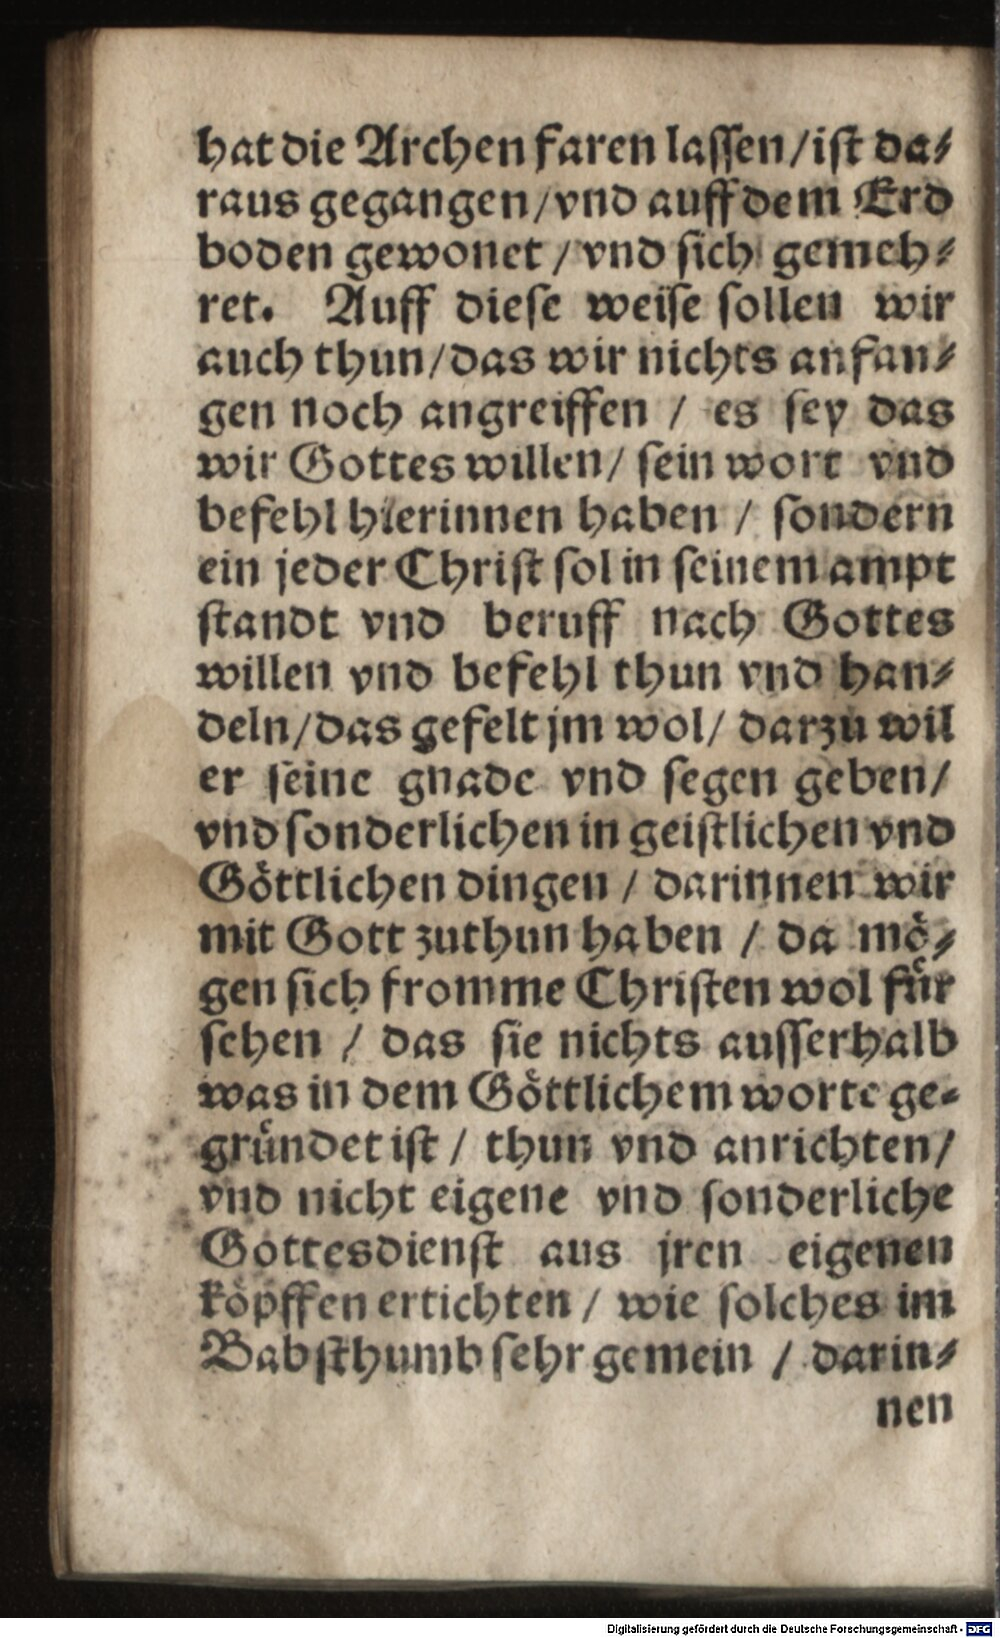 hat die Archen faren lassen/ist da⸗
raus gegangen/vnd auff dem Erd
boden gewonet / vnd sich gemeh⸗
ret. Auff diese weise sollen wir
auch thun/das wir nichts anfan⸗
gen noch angreiffen / es sey das
wir Gottes willen/ sein wort vnd
befehl hierinnen haben / sondern
ein jeder Christ sol in seinem ampt
standt vnd beruff nach Gottes
willen vnd befehl thun vnd han⸗
deln/das gefelt jm wol/ darzu wil
er seine gnade vnd segen geben/
vnd sonderlichen in geistlichen vnd
Göttlichen dingen / darinnen wir
mit Gott zuthun haben / da mö⸗
gen sich fromme Christen wol für
sehen / das sie nichts ausserhalb
was in dem Göttlichem worte ge⸗
gründet ist / thun vnd anrichten/
vnd nicht eigene vnd sonderliche
Gottesdienst aus jren eigenen
köpffen ertichten / wie solches im
Babsthumb sehr gemein / darin⸗
nen
Digitalisierung gefördert durch die Deutsche Forschungsgemeinschaft - DFG